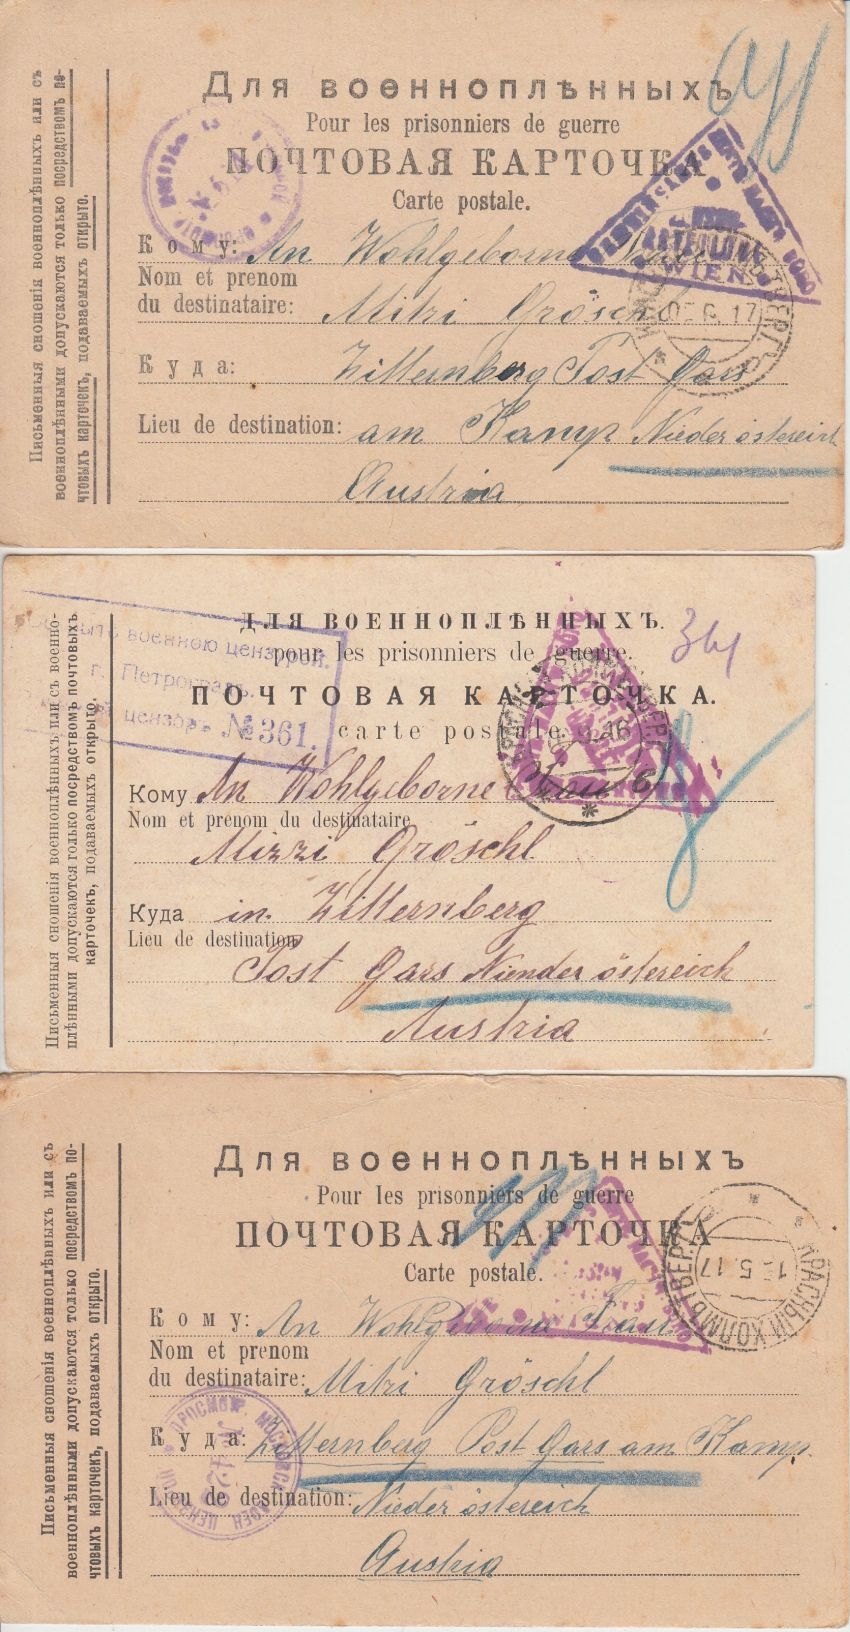 Для военноплѣнныхъ
Pour les prisonniers de guerre
ПОЧТОВАЯ КАРТОЧКА
Carte postale.
Кому: An Wohlgeborne
Nom et prenom
du destinataire: Mitzi Gröschl
Куда: Zitternberg Post Gars
Lieu de destination: am Kamp Niederöstereich
Austria
Письменныя сношенія военноплѣнныхъ или съ
военноплѣнными допускаются только посредствомъ по-
чтовыхъ карточекъ, подаваемыхъ открыто.
WIEN
17
ДЛЯ ВОЕННОПЛѢННЫХЪ.
pour les prisonniers de guerre.
ПОЧТОВАЯ КАРТОЧКА.
carte postale
военною цензурой.
г. Петроградъ.
цензоръ №361.
361
16
6
Кому An Wohlgeborne Frau
Nom et prenom du destinataire
Mizzi Gröschl
Куда in Zitternberg
Lieu de destination
Post Gars Niender östereich
Austria
Письменныя сношенія военноплѣнныхъ или съ военно-
плѣнными допускаются только посредствомъ почтовыхъ
карточекъ, подаваемыхъ открыто.
Для военноплѣнныхъ
Pour les prisonniers de guerre
ПОЧТОВАЯ КАРТОЧКА
Carte postale.
Кому: An Wohlgeborne Frau
Nom et prenom
du destinataire: Mitzi Gröschl
Куда: Zitternberg Post Gars am Kamp
Lieu de destination: Nieder östereich
Austria
Письменныя сношенія военноплѣнныхъ или съ
военноплѣнными допускаются только посредствомъ по-
чтовыхъ карточекъ, подаваемыхъ открыто.
КРАСНЫЙ ХОЛМЪ ТВЕР.
5 17